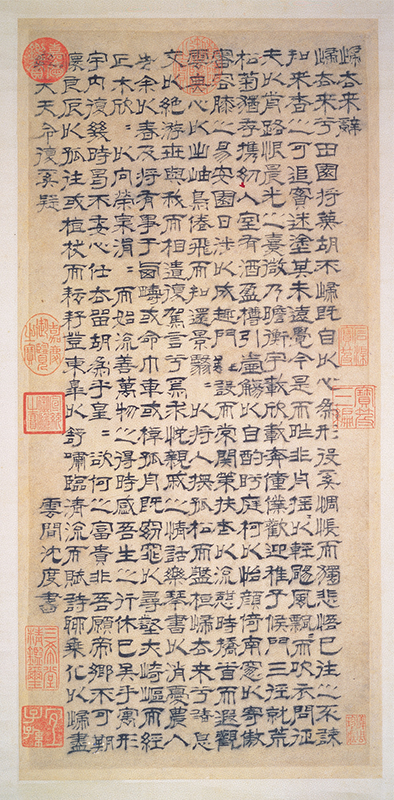 歸去來辭
歸去來兮田園將蕪胡不歸既自以心為形役奚惆悵而獨悲悟已往之不諫
知來者之可追實迷塗其未遠覺今是而昨非舟搖〻以輕颺風飄〻而吹衣問征
夫以前路恨晨光之熹微乃瞻衡宇載欣載奔僮僕歡迎稚子候門三徑就荒
松菊猶存攜幼入室有酒盈樽引壺觴以自酌眄庭柯以怡顏倚南窻以寄傲
審容膝之易安園日涉以成趣門雖設而常關策扶老以流憩時矯首而遐觀
雲無心以出岫鳥倦飛而知還景翳〻以將入撫孤松而盤桓歸去來兮請息
交以絕游世與我而相遺復駕言兮焉求悅親戚之情話樂琴書以消憂農人
告余以春及將有事于西疇或命巾車或棹孤舟既窈窕以尋壑亦崎嶇而經
丘木欣〻以向榮泉涓〻而始流善萬物之得時感吾生之行休已矣乎寓形
宇內復幾時曷不委心任去留胡為乎皇〻欲何之富貴非吾願帝鄉不可期
懷良辰以孤往或植杖而耘耔登東皋以舒嘯臨清流而賦詩聊乘化以歸盡
樂夫天命復奚疑
雲間沈度書
寶笈三編
嘉慶御覽之寶
三希堂精鑑璽
宜子孫